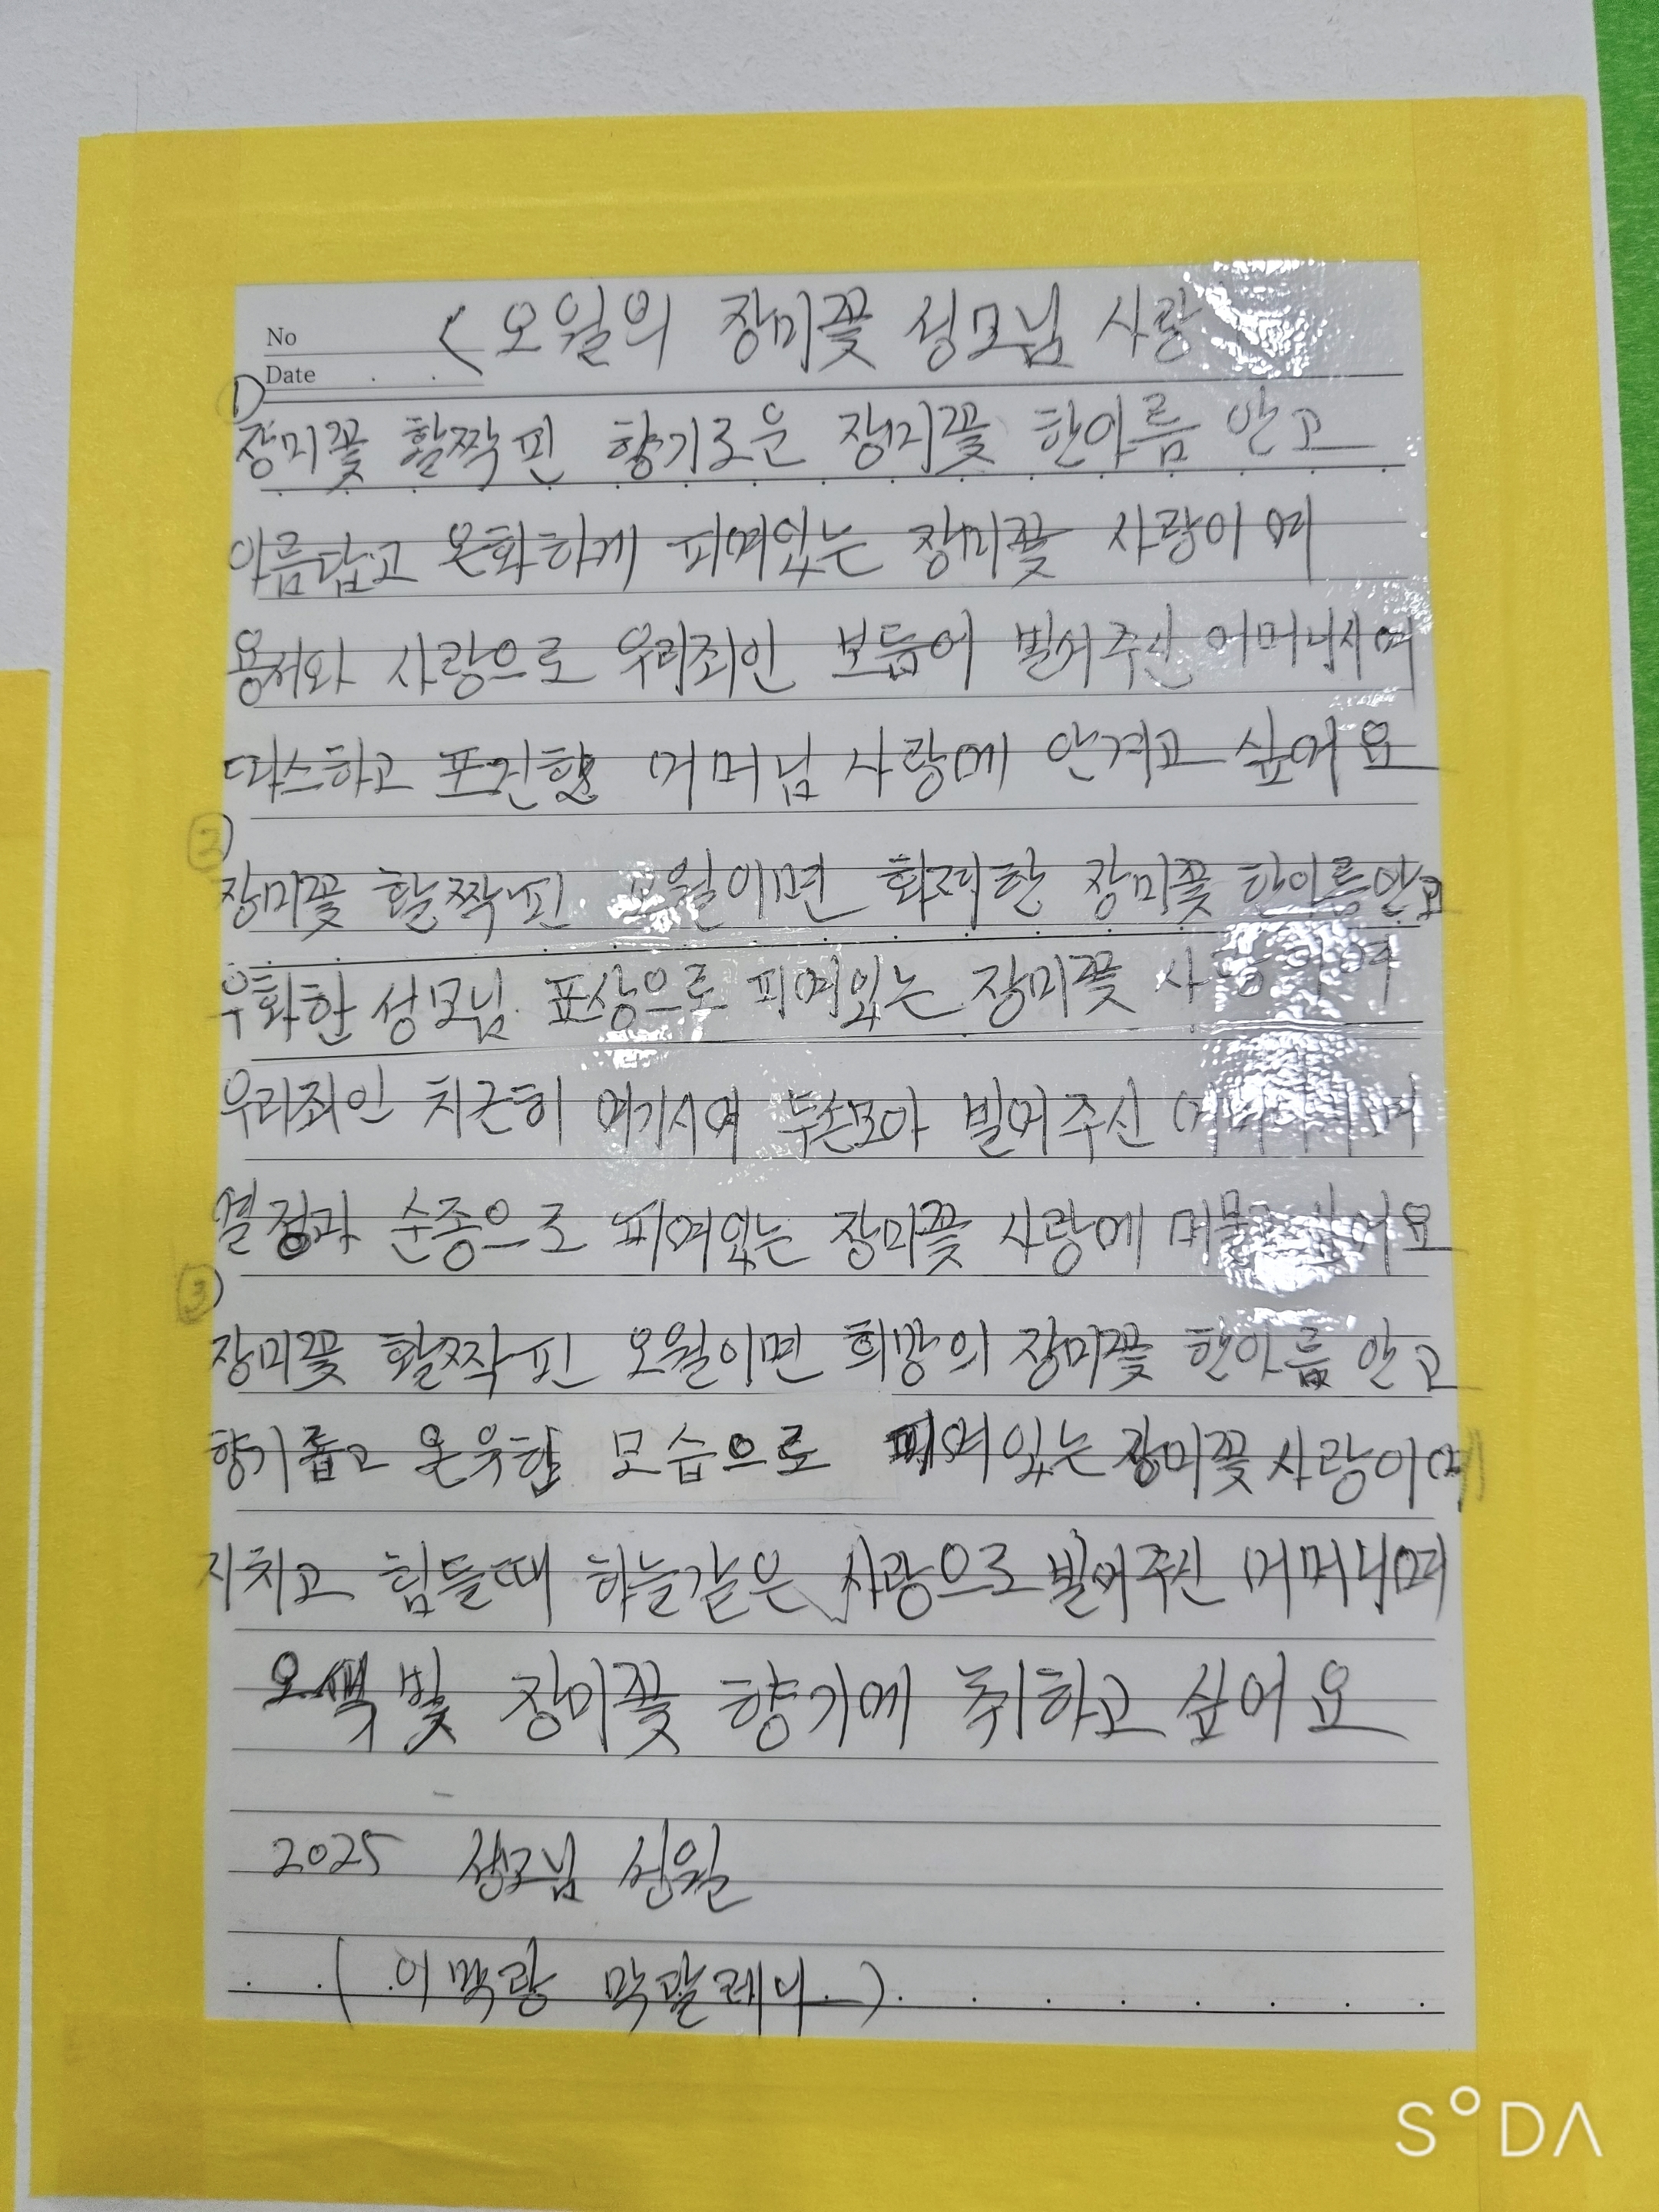 No
Date
< 오월의 장미꽃 성모님 사랑
①
장미꽃 활짝 핀 향기로운 장미꽃 한아름 안고
아름답고 온화하게 피여있는 장미꽃 사랑이여
용서와 사랑으로 우리죄인 보듬어 빌어주신 어머니시여
따스하고 포근한 어머님 사랑에 안겨고 싶어요
②
장미꽃 활짝 핀 오월이면 화려한 장미꽃 한아름안고
우화한 성모님 표상으로 피여있는 장미꽃
우리죄인 치근히 여기시여 두손모아 빌어주신
열정과 순종으로 피여있는 장미꽃 사랑에
③
장미꽃 활짝 핀 오월이면 희망의 장미꽃 한아름 안고
향기롭고 온유한 모습으로 피여있는 장미꽃 사랑이여
지치고 힘들때 하늘같은 사랑으로 빌어주신 어머니여
오색빛 장미꽃 향기에 취하고 싶어요
2025 성모님 성월
막달레나
S°DA